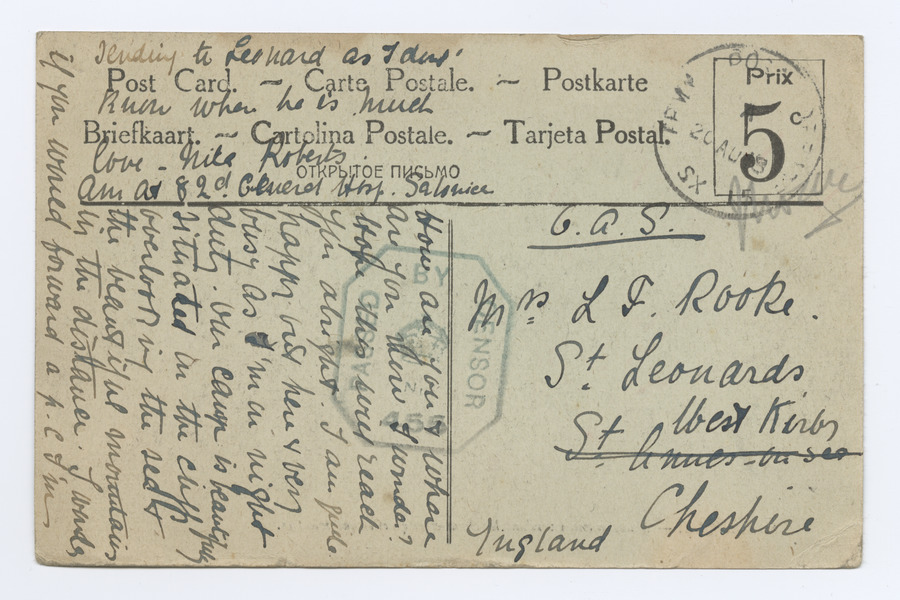 Post Card. ~ Carte Postale. ~ Postkarte
Briefkaart. ~ Cartolina Postale. ~ Tarjeta Postal.
ОТКРЫТОЕ ПИСЬМО
Prix
5c
POST OFFICE
20 AU
SX
O.A.S.
Mrs L F. Rooke.
St. Leonards
West Kirby
St. Annes-on-sea
Cheshire
England
PASSED BY CENSOR
No 455
How are you & where
are you now I wonder?
Hope this will reach
you alright. I am quite
happy out here & very
busy as I'm on night
duty. Our camp is beautifully
situated in the
overlooking the
the beautiful mountains
in the distance. I wonder
if you would forward a p.c I'm
sending to Leonard as I don't
know when he is much
love - Nita Roberts.
am at 82d General Hosp. Salonica